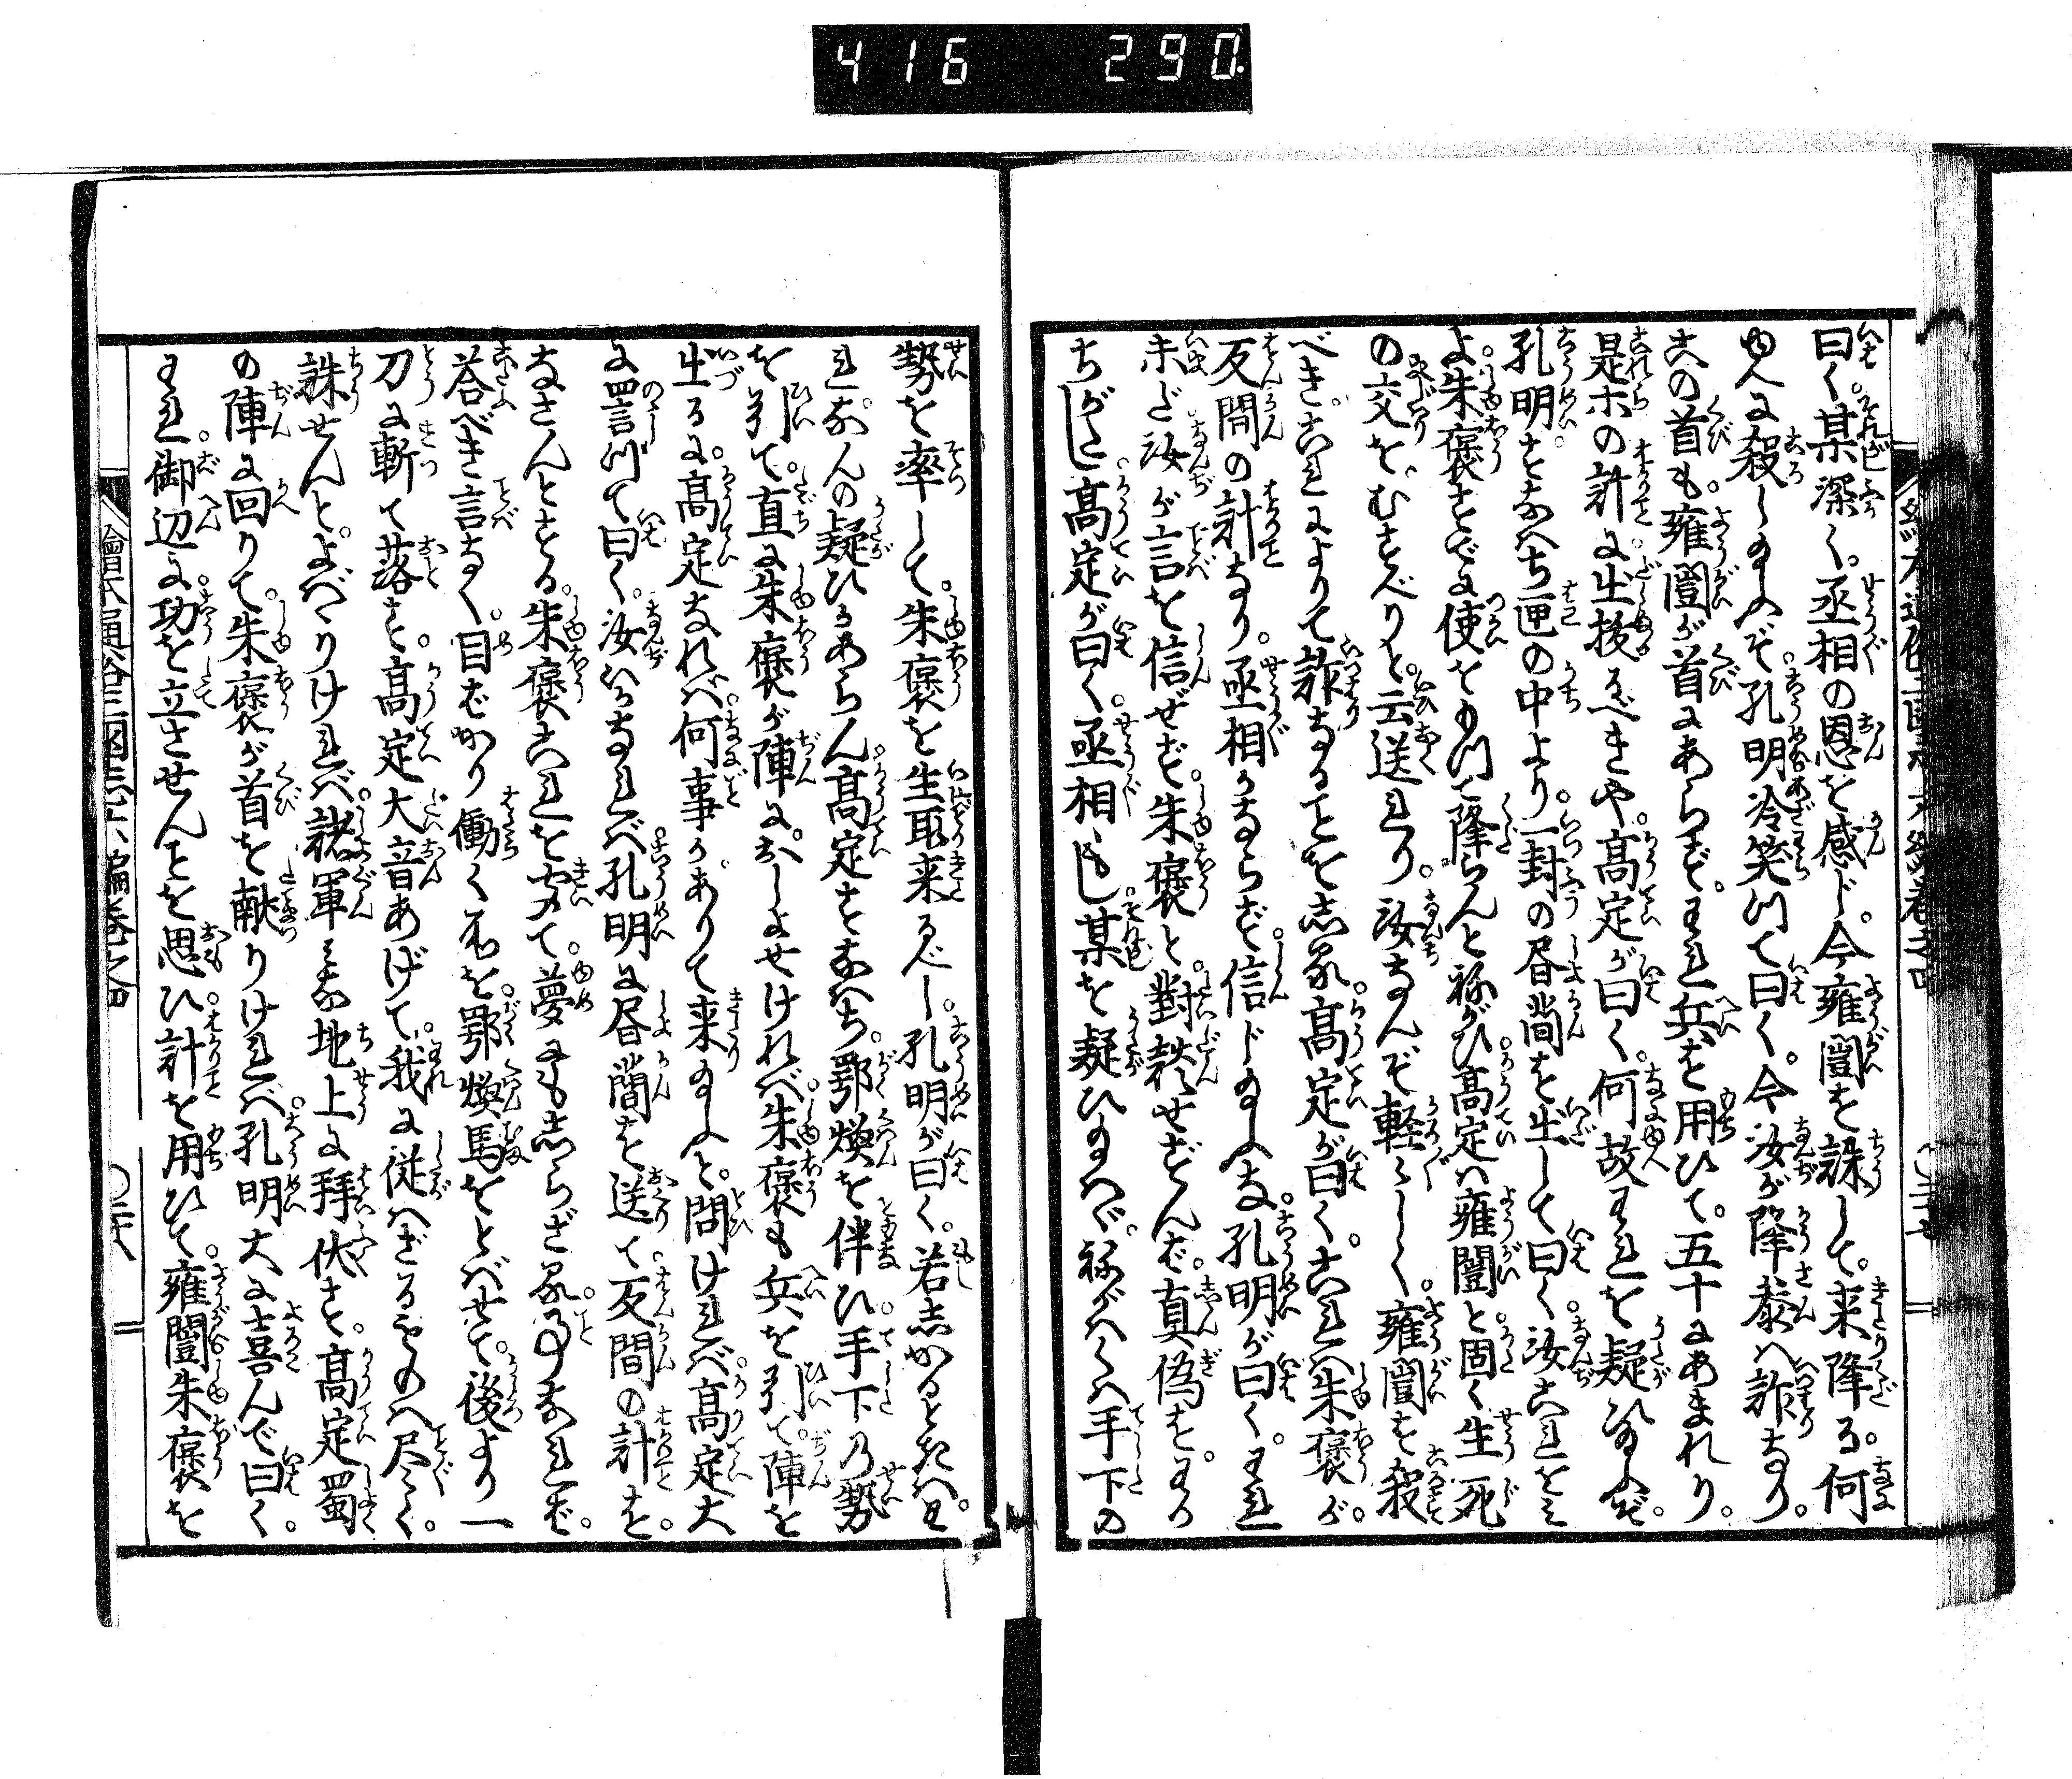 416 290.
曰く某深く。丞相の恩を感ず。今雍闓を誅して。来降る。何
ゆへに殺し給ふぞ。孔明冷笑つて曰く。今汝が降参ハ詐なり。
この首も。雍闓が首にあらず。それ兵を用ひて。五十にあまれり。
是ホの計に出抜るべきや。高定が曰く。何故それを疑ひ給ふぞ。
孔明。すなハち匣の中より。一封の昼簡を出して曰く。汝これをミ
よ。朱褒すでに使をもつて降らんと祢がひ。高定ハ雍闓と固く生死
の交を。むすべりと。云送れり。汝なんぞ軽〻しく。雍闓を殺
べき。これによりて詐なることを志る。高定が曰く。これハ朱褒が。
反間の計なり。丞相かならず信じ給ふな。孔明が曰く。それ
未だ汝が言を信ぜず。朱褒と。對談せずんば。真偽を。わか
ちがし。高定が曰く。丞相もし某を疑ひ給ハゞ。祢がハくハ手下の
勢を率して。朱褒を生取来るべし。孔明が曰く。若志かるときハ。わ
れなんの疑ひかあらん。高定すなハち。鄂煥を伴ひ。手下乃勢
を引て。直に朱褒が陣に。おしよせけれバ。朱褒も兵を引て。陣を
出るに。高定なれバ。何事かありて来給ふと。問けれバ。高定大
に罵つて曰く。汝いかなれバ孔明に昼簡を送て。反間の計を。
なさんとする。朱褒これを聞て。夢にも志らざる。事なれば。
荅べき言なく。目ばかり働く所を。鄂煥馬をとばせて。後より一
刀に斬て落す。高定大音あげて。我に従ハざるものハ尽く。
誅せんと。よバゝりけれバ。諸軍ミな地上に拝伏す。高定蜀
の陣に回りて。朱褒が首を献りけれバ。孔明大に喜んで曰く。
それ。御辺に。功を立させんことを思ひ。計を用ひて。雍闓朱褒を